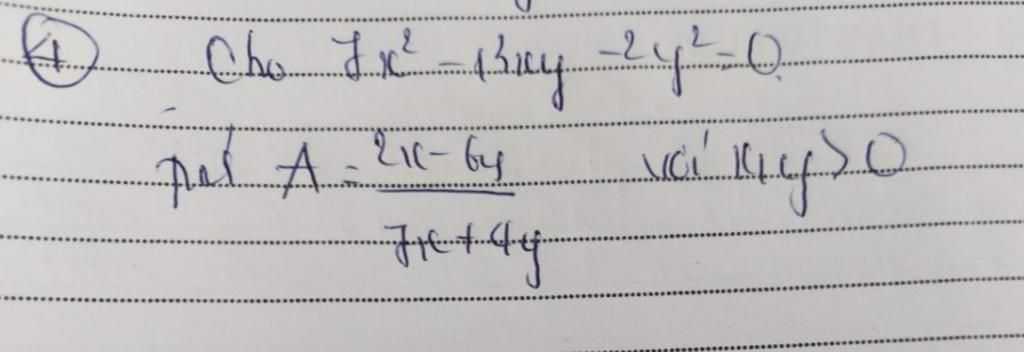 ④ Cho 7x² - 13xy - 2y² = 0.
A = \frac{2x - 6y}{7x + 4y} với x, y > 0